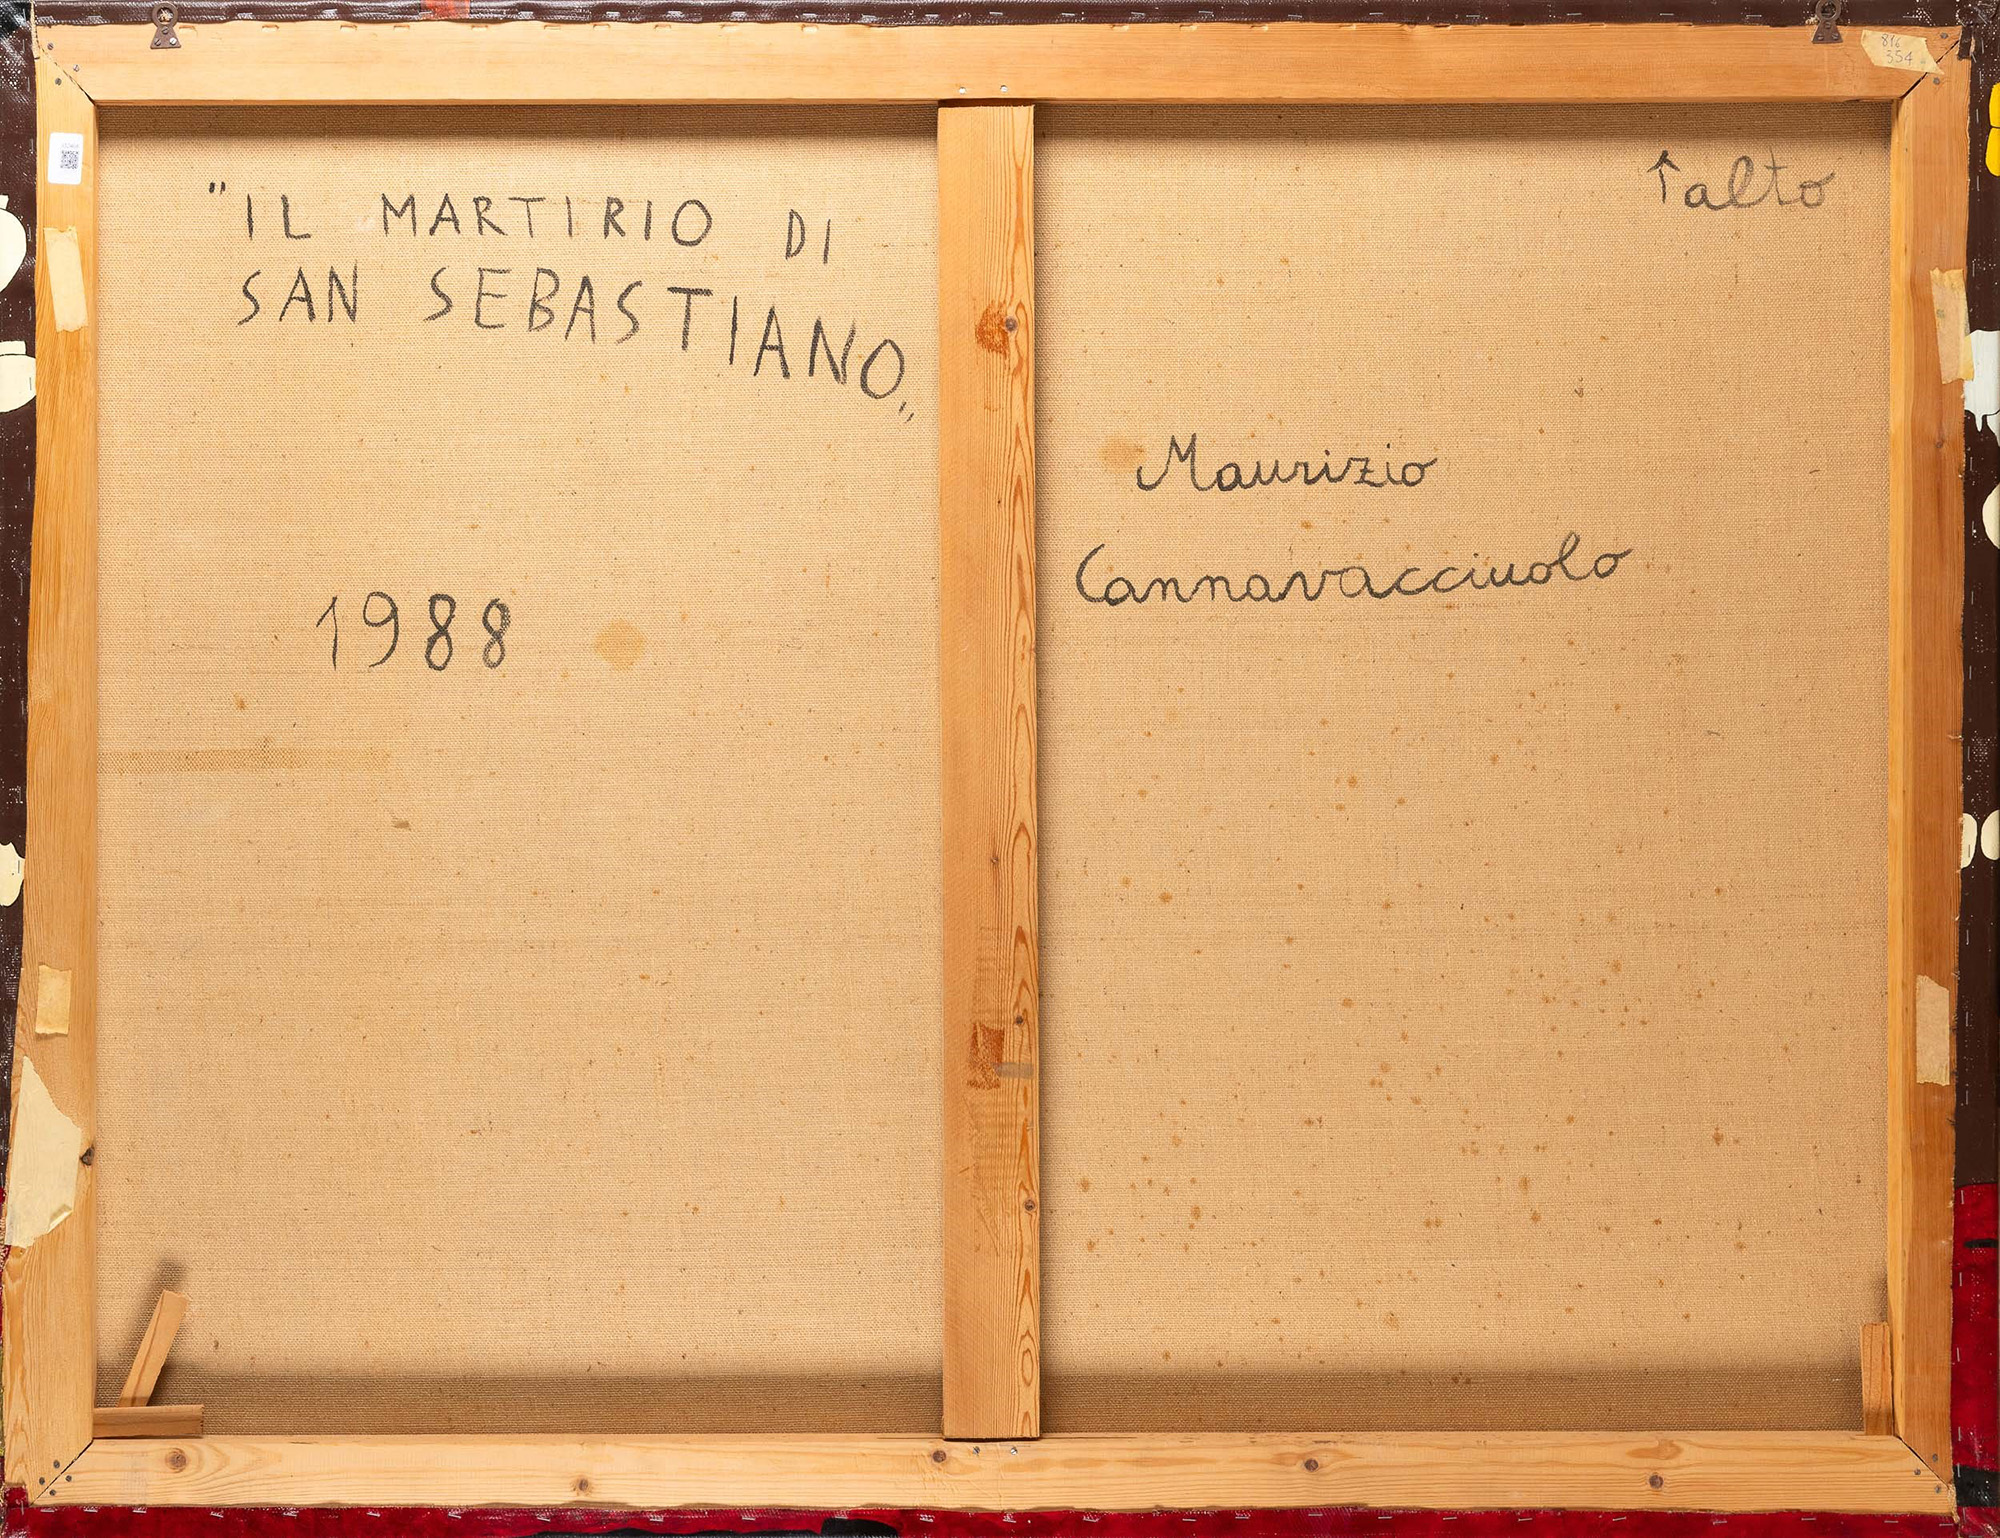 816
354
"IL MARTIRIO DI
SAN SEBASTIANO„
1988
↑alto
Maurizio
Cannavacciuolo